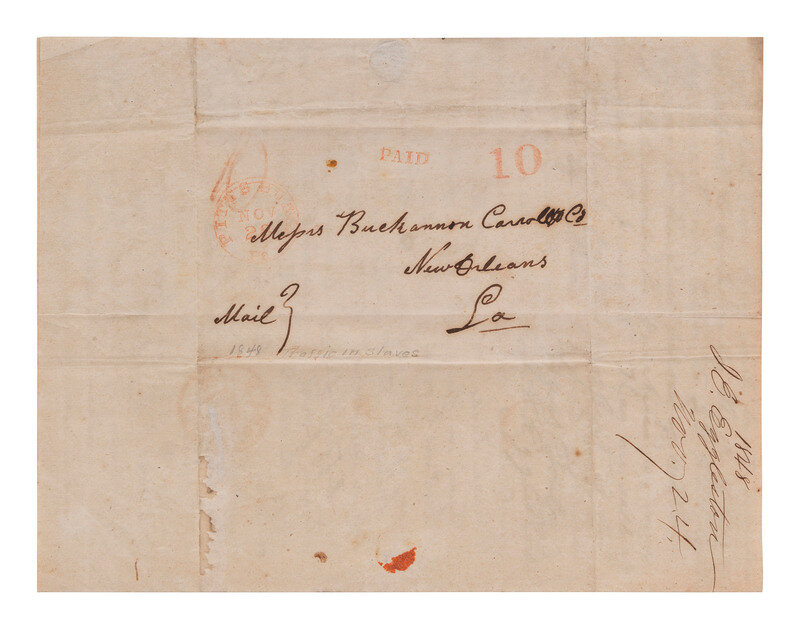 PAID 10
NOV
Messrs Buckannon Carroll & Co
New Orleans
La
Mail
1848 Traffic in Slaves
1848
Eggleston
Nov. 24.